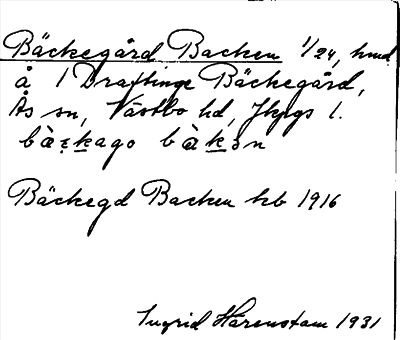 Bäckegård Backen 1/24, hmd
å 1 Draftinge Bäckegård,
Ås sn, Västbo hd, Jkpgs l.
bæ̀kago bàkən
Bäckegd Backen kb 1916
Ingrid Härenstam 1931